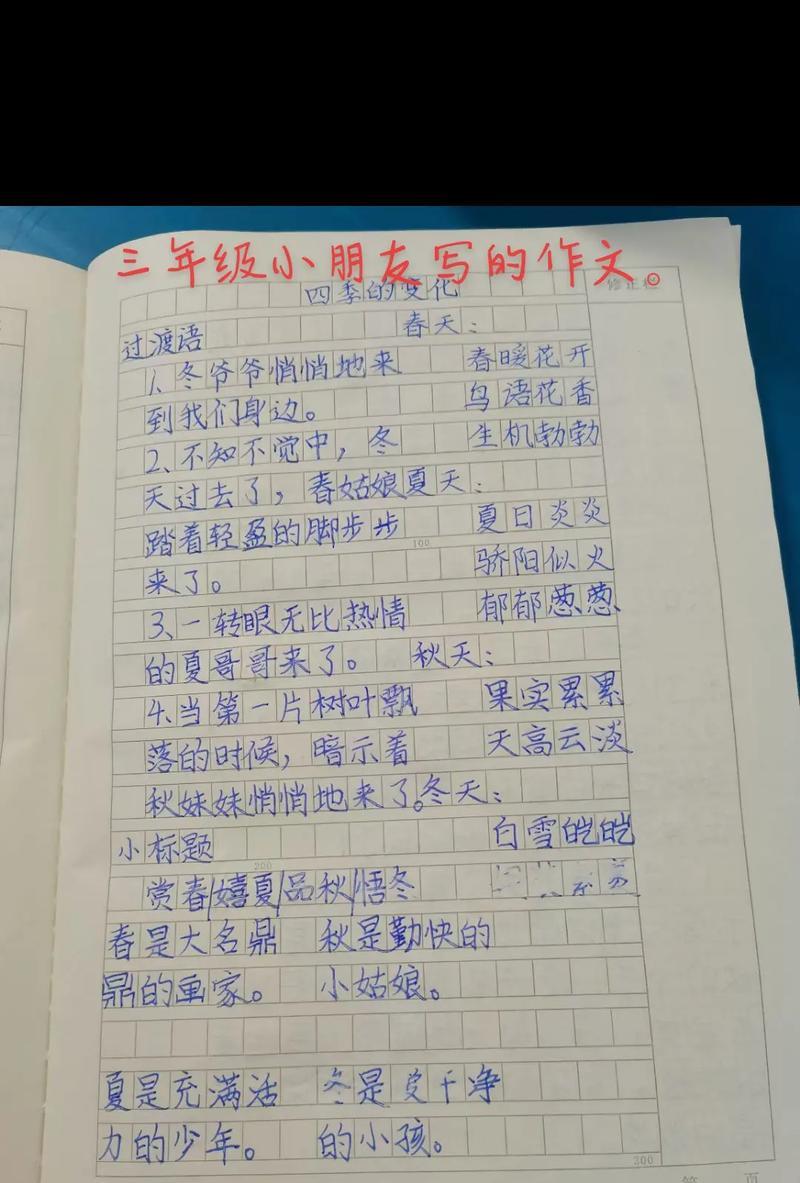 三年级小朋友写的作文。
四季的变化
修正栏
过渡语 春天：
1、冬爷爷悄悄地来 春暖花开
到我们身边。 鸟语花香
2、不知不觉中，冬 生机勃勃
天过去了，春姑娘 夏天：
踏着轻盈的脚步步 夏日炎炎
100
来了。 骄阳似火
3、一转眼无比热情 郁郁葱葱
的夏哥哥来了。 秋天：
4、当第一片树叶飘 果实累累
落的时候，暗示着 天高云淡
秋妹妹悄悄地来了。冬天：
小标题 白雪皑皑
200
赏春/嬉夏/品秋/悟冬
春是大名鼎 秋是勤快的
鼎的画家。 小姑娘。
夏是充满活 冬是 干净
力的少年。 的小孩。
300
第 页